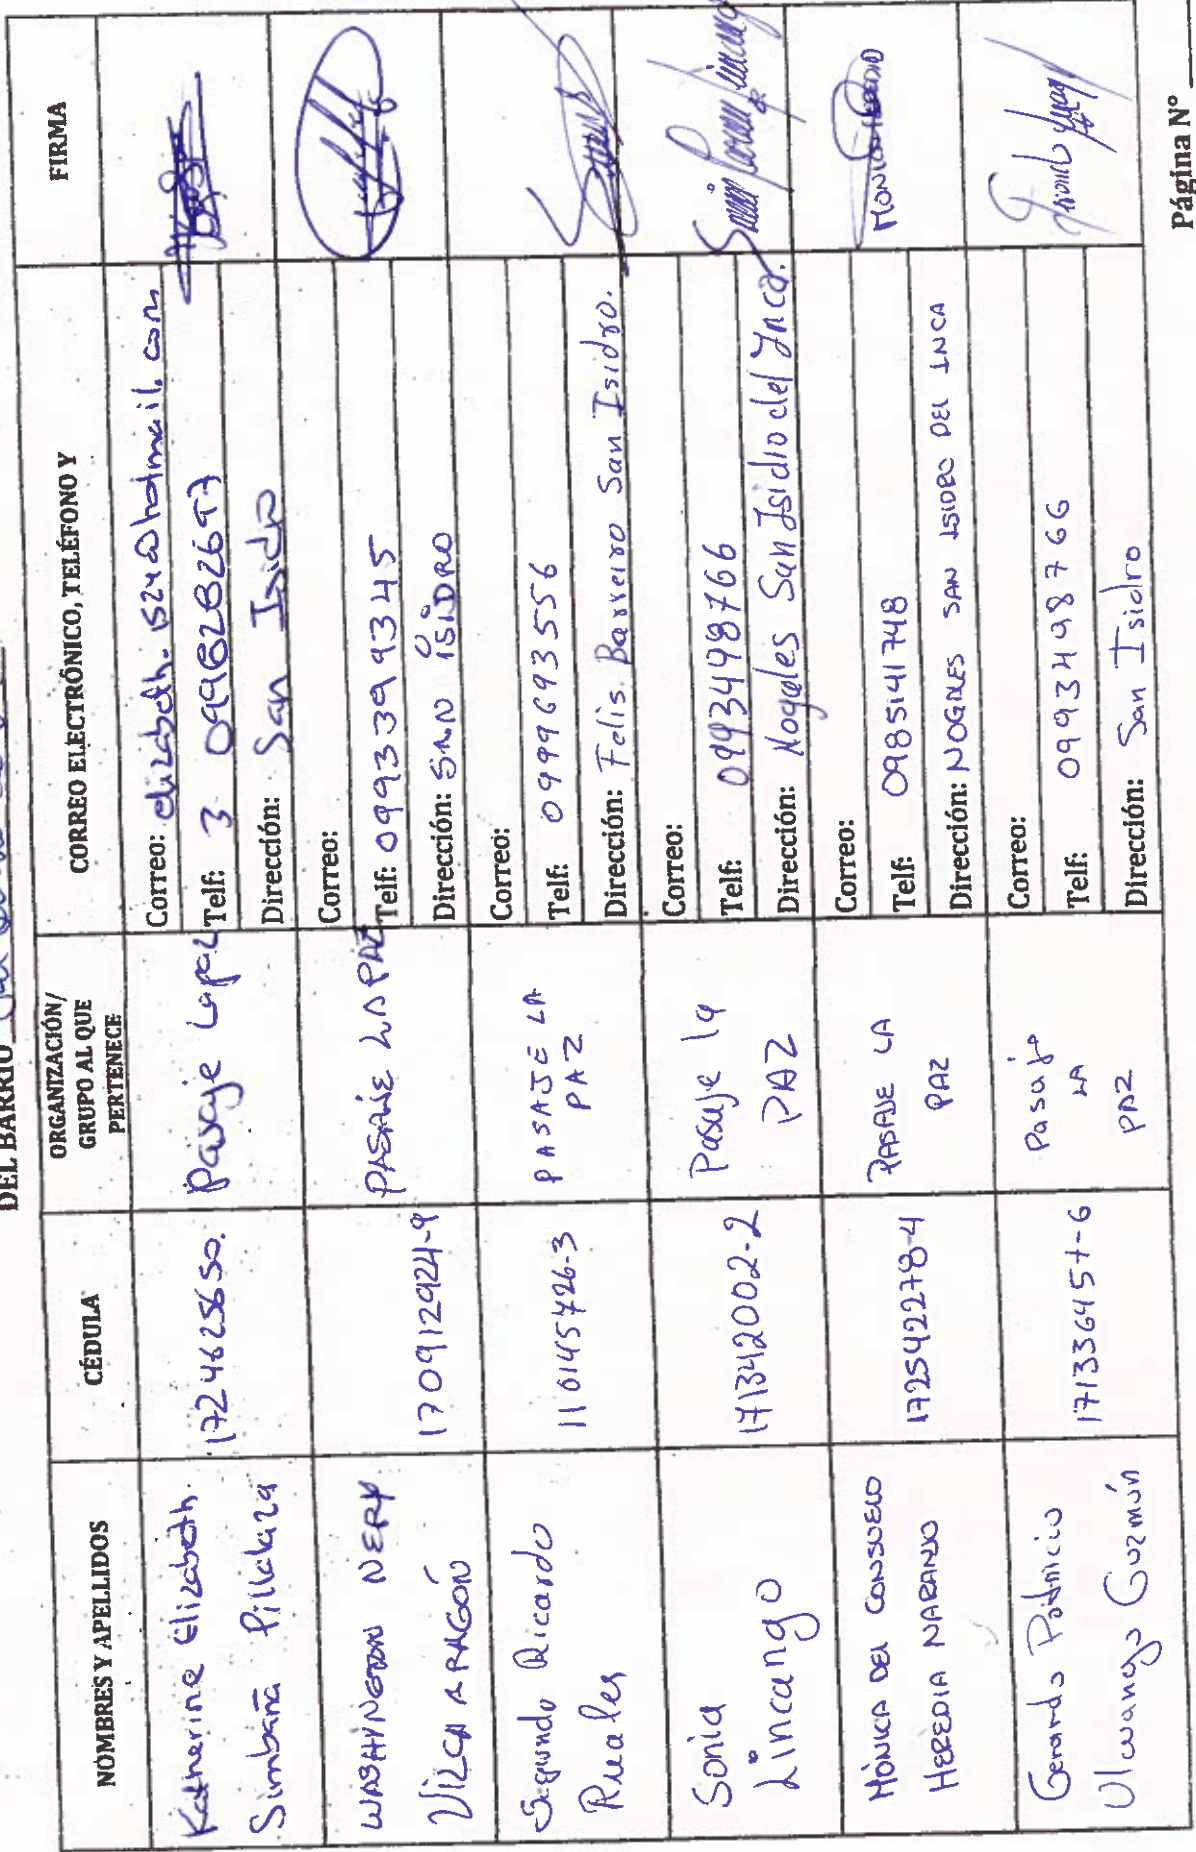 DEL BARRIO
NOMBRES Y APELLIDOS
CÉDULA
ORGANIZACIÓN/
GRUPO AL QUE
PERTENECE
CORREO ELECTRÓNICO, TELÉFONO Y
FIRMA
Katherine Elizabeth.
Simbaña Pillalaza
1724625650.
Pasaje Lapaz
Correo: elizabeth.1524@hotmail.com
Telf: 3 0996282697
Dirección: San Isidro
WASHINGTON NERY
VILCA ARAGÓN
170912924-9
PASAJE LA PAZ
Correo:
Telf: 09933949345
Dirección: SAN ISIDRO
Segundo Ricardo
Ruales
110145726-3
PASAJE LA
PAZ
Correo:
Telf: 0999693556
Dirección: Felis Barreiro San Isidro.
Sonia
Lincango
171342002-2
Pasaje la
PAZ
Correo:
Telf: 0993498766
Dirección: Nogales San Isidro del Inca.
MÓNICA DEL CONSUELO
HEREDIA NARANJO
172542278-4
PASAJE LA
PAZ
Correo:
Telf: 0985141748
Dirección: NOGALES SAN ISIDRO DEL INCA
Gerardo Patricio
Ulcuango Guzmán
171336457-6
Pasaje
LA
PAZ
Correo:
Telf: 0993498766
Dirección: San Isidro
Página N°